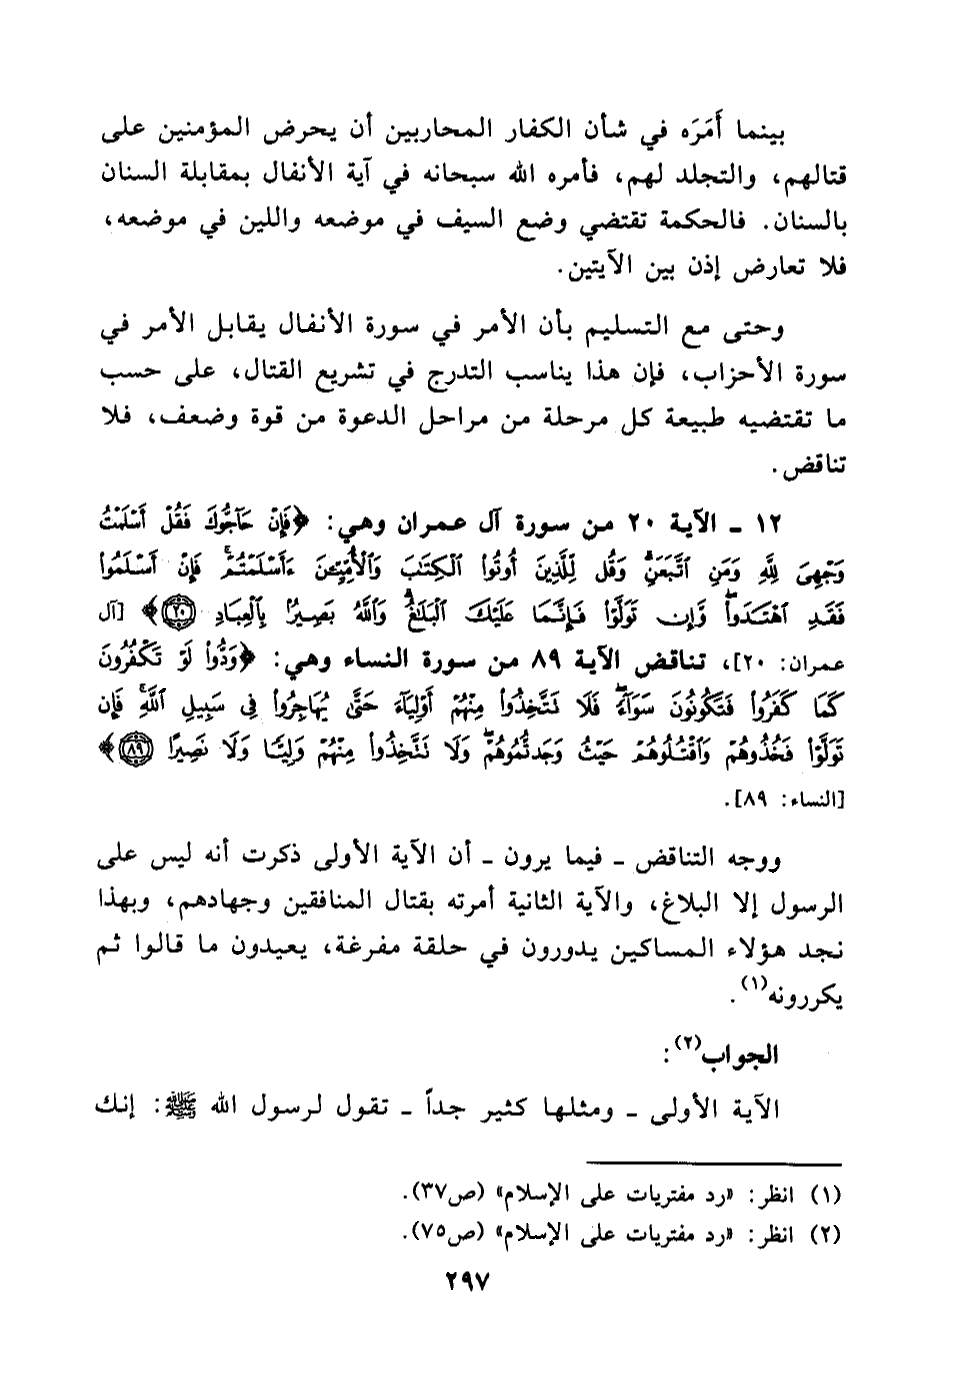 بينما أَمَرَه في شأن الكفار المحاربين أن يحرض المؤمنين على
قتالهم، والتجلد لهم، فأمره الله سبحانه في آية الأنفال بمقابلة السنان
بالسنان. فالحكمة تقتضي وضع السيف في موضعه واللين في موضعه،
فلا تعارض إذن بين الآيتين.
وحتى مع التسليم بأن الأمر في سورة الأنفال يقابل الأمر في
سورة الأحزاب، فإن هذا يناسب التدرج في تشريع القتال، على حسب
ما تقتضيه طبيعة كل مرحلة من مراحل الدعوة من قوة وضعف، فلا
تناقض.
١٢ ـ الآية ٢٠ من سورة آل عمران وهي: ﴿فَإِنْ حَآجُّوكَ فَقُلْ أَسْلَمْتُ
وَجْهِىَ لِلَّهِ وَمَنِ ٱتَّبَعَنِۗ وَقُل لِّلَّذِينَ أُوتُوا۟ ٱلْكِتَٰبَ وَٱلْأُمِّيِّـۧنَ ءَأَسْلَمْتُمْۚ فَإِنْ أَسْلَمُوا۟
فَقَدِ ٱهْتَدَوا۟ۖ وَّإِن تَوَلَّوْا۟ فَإِنَّمَا عَلَيْكَ ٱلْبَلَٰغُۗ وَٱللَّهُ بَصِيرٌۢ بِٱلْعِبَادِ ٢٠﴾ [آل
عمران: ٢٠]، تناقض الآية ٨٩ من سورة النساء وهي: ﴿وَدُّوا۟ لَوْ تَكْفُرُونَ
كَمَا كَفَرُوا۟ فَتَكُونُونَ سَوَآءًۖ فَلَا تَتَّخِذُوا۟ مِنْهُمْ أَوْلِيَآءَ حَتَّىٰ يُهَاجِرُوا۟ فِى سَبِيلِ ٱللَّهِۚ فَإِن
تَوَلَّوْا۟ فَخُذُوهُمْ وَٱقْتُلُوهُمْ حَيْثُ وَجَدتُّمُوهُمْۖ وَلَا تَتَّخِذُوا۟ مِنْهُمْ وَلِيًّا وَلَا نَصِيرًا ٨٩﴾
[النساء: ٨٩].
ووجه التناقض ـ فيما يرون ـ أن الآية الأولى ذكرت أنه ليس على
الرسول إلا البلاغ، والآية الثانية أمرته بقتال المنافقين وجهادهم، وبهذا
نجد هؤلاء المساكين يدورون في حلقة مفرغة، يعيدون ما قالوا ثم
يكررونه(١).
الجواب(٢):
الآية الأولى ـ ومثلها كثير جداً ـ تقول لرسول الله ﷺ: إنك
(١) انظر: «رد مفتريات على الإسلام» (ص٣٧).
(٢) انظر: «رد مفتريات على الإسلام» (ص٧٥).
٢٩٧